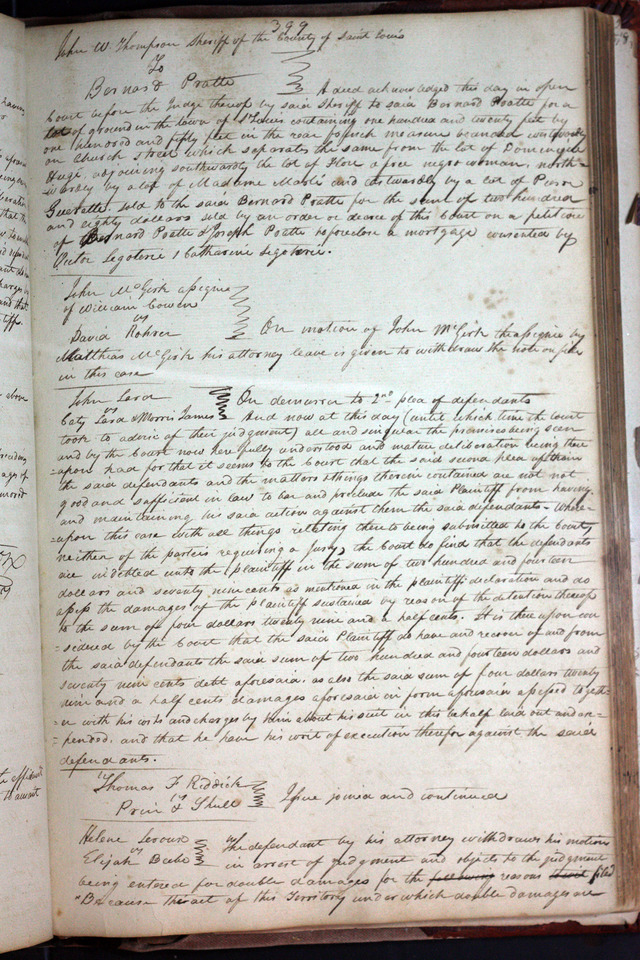 399
John W. Thompson Sheriff of the County of Saint Louis
To
Bernard Pratte
A deed acknowledged this day in open
Court before the Judge thereof by said Sheriff to said Bernard Pratte for a
lot of ground in the town of St Louis containing one hundred and twenty feet by
one hundred and fifty feet in the rear french measure bounded westwardly
on Church Street which separates the same from the lot of Domingue
Hugé, adjoining southwardly the lot of Flore a free negro woman, north-
wardly by a lot of Madame Marli and eastwardly by a lot of Pierre
sold to the said Bernard Pratte for the sum of two hundred
and eighty dollars sold by an order or decree of this Court on a petition
of Bernard Pratte & Joseph Pratte to foreclose a mortgage consented by
Victor Legoterie & Catharine Legoterie.
John McGirk assignee
of William Cowen
vs
David Rohrer
On motion of John McGirk the assignee by
Matthias McGirk his attorney leave is given to withdraw the note on file
in this case
John Lard
vs
Caty Lard & Morris James
On demurrer to 2nd plea of defendants
And now at this day (until which time the Court
took to advise of their judgment) all and singular the premises being seen
and by the Court now here fully understood and mature deliberation being there
=upon had for that it seems to the Court that the said second plea of them
the said defendants and the matters & things therein contained are not not
good and sufficient in law to bar and preclude the said Plaintiff from having
and maintaining his said action against them the said defendants - Where=
=upon this case with all things relating thereto being submitted to the Court
neither of the parties requiring a jury, the Court do find that the defendants
are indebted unto the plaintiff in the sum of two hundred and fourteen
dollars and seventy nine cents as mentioned in the plaintiffs declaration and do
assess the damages of the plaintiff sustained by reason of the detention thereof
to the sum of four dollars twenty nine and a half cents. It is thereupon con
=sidered by the Court that the said Plaintiff do have and recover of and from
the said defendants the said sum of two hundred and fourteen dollars and
seventy nine cents debt aforesaid. as also the said sum of four dollars twenty
nine and a half cents damages aforesaid in form aforesaid assessed togeth-
er with his costs and charges by him about his suit in this behalf laid out and ex=
=pended. and that he have his writ of execution therefor against the said
defendants.
Thomas F Riddick
vs
& Skull
Issue joined and continued
Helene Leroux
vs
Elijah Beebe
The defendant by his attorney withdraws his motion
in arrest of judgment and objects to the judgment
being entered for double damages for the following reasons filed
"Because the act of this Territory under which double damages are